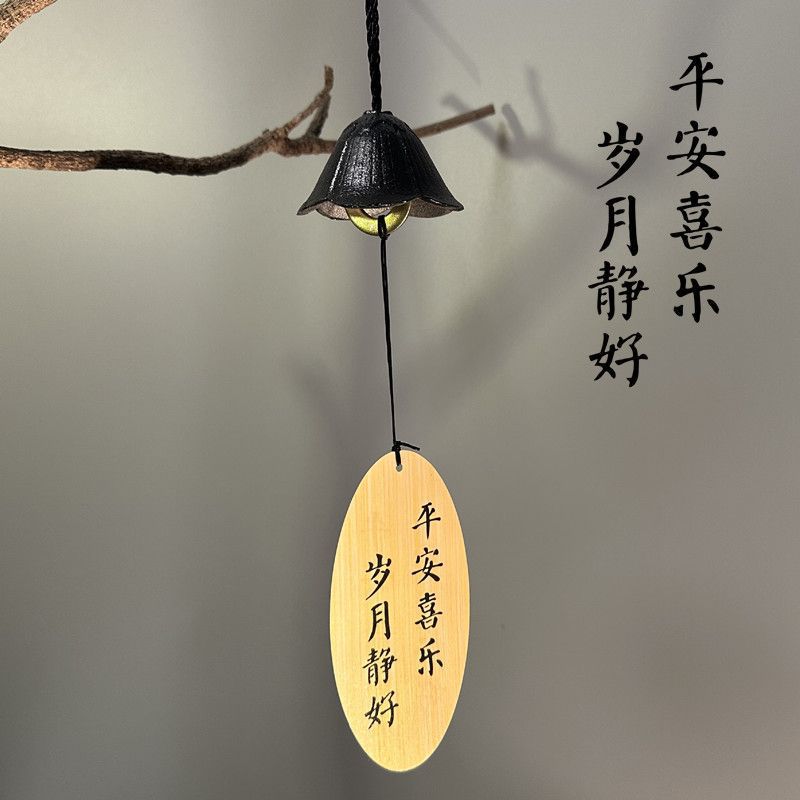 平安喜乐
岁月静好
平安喜乐
岁月静好